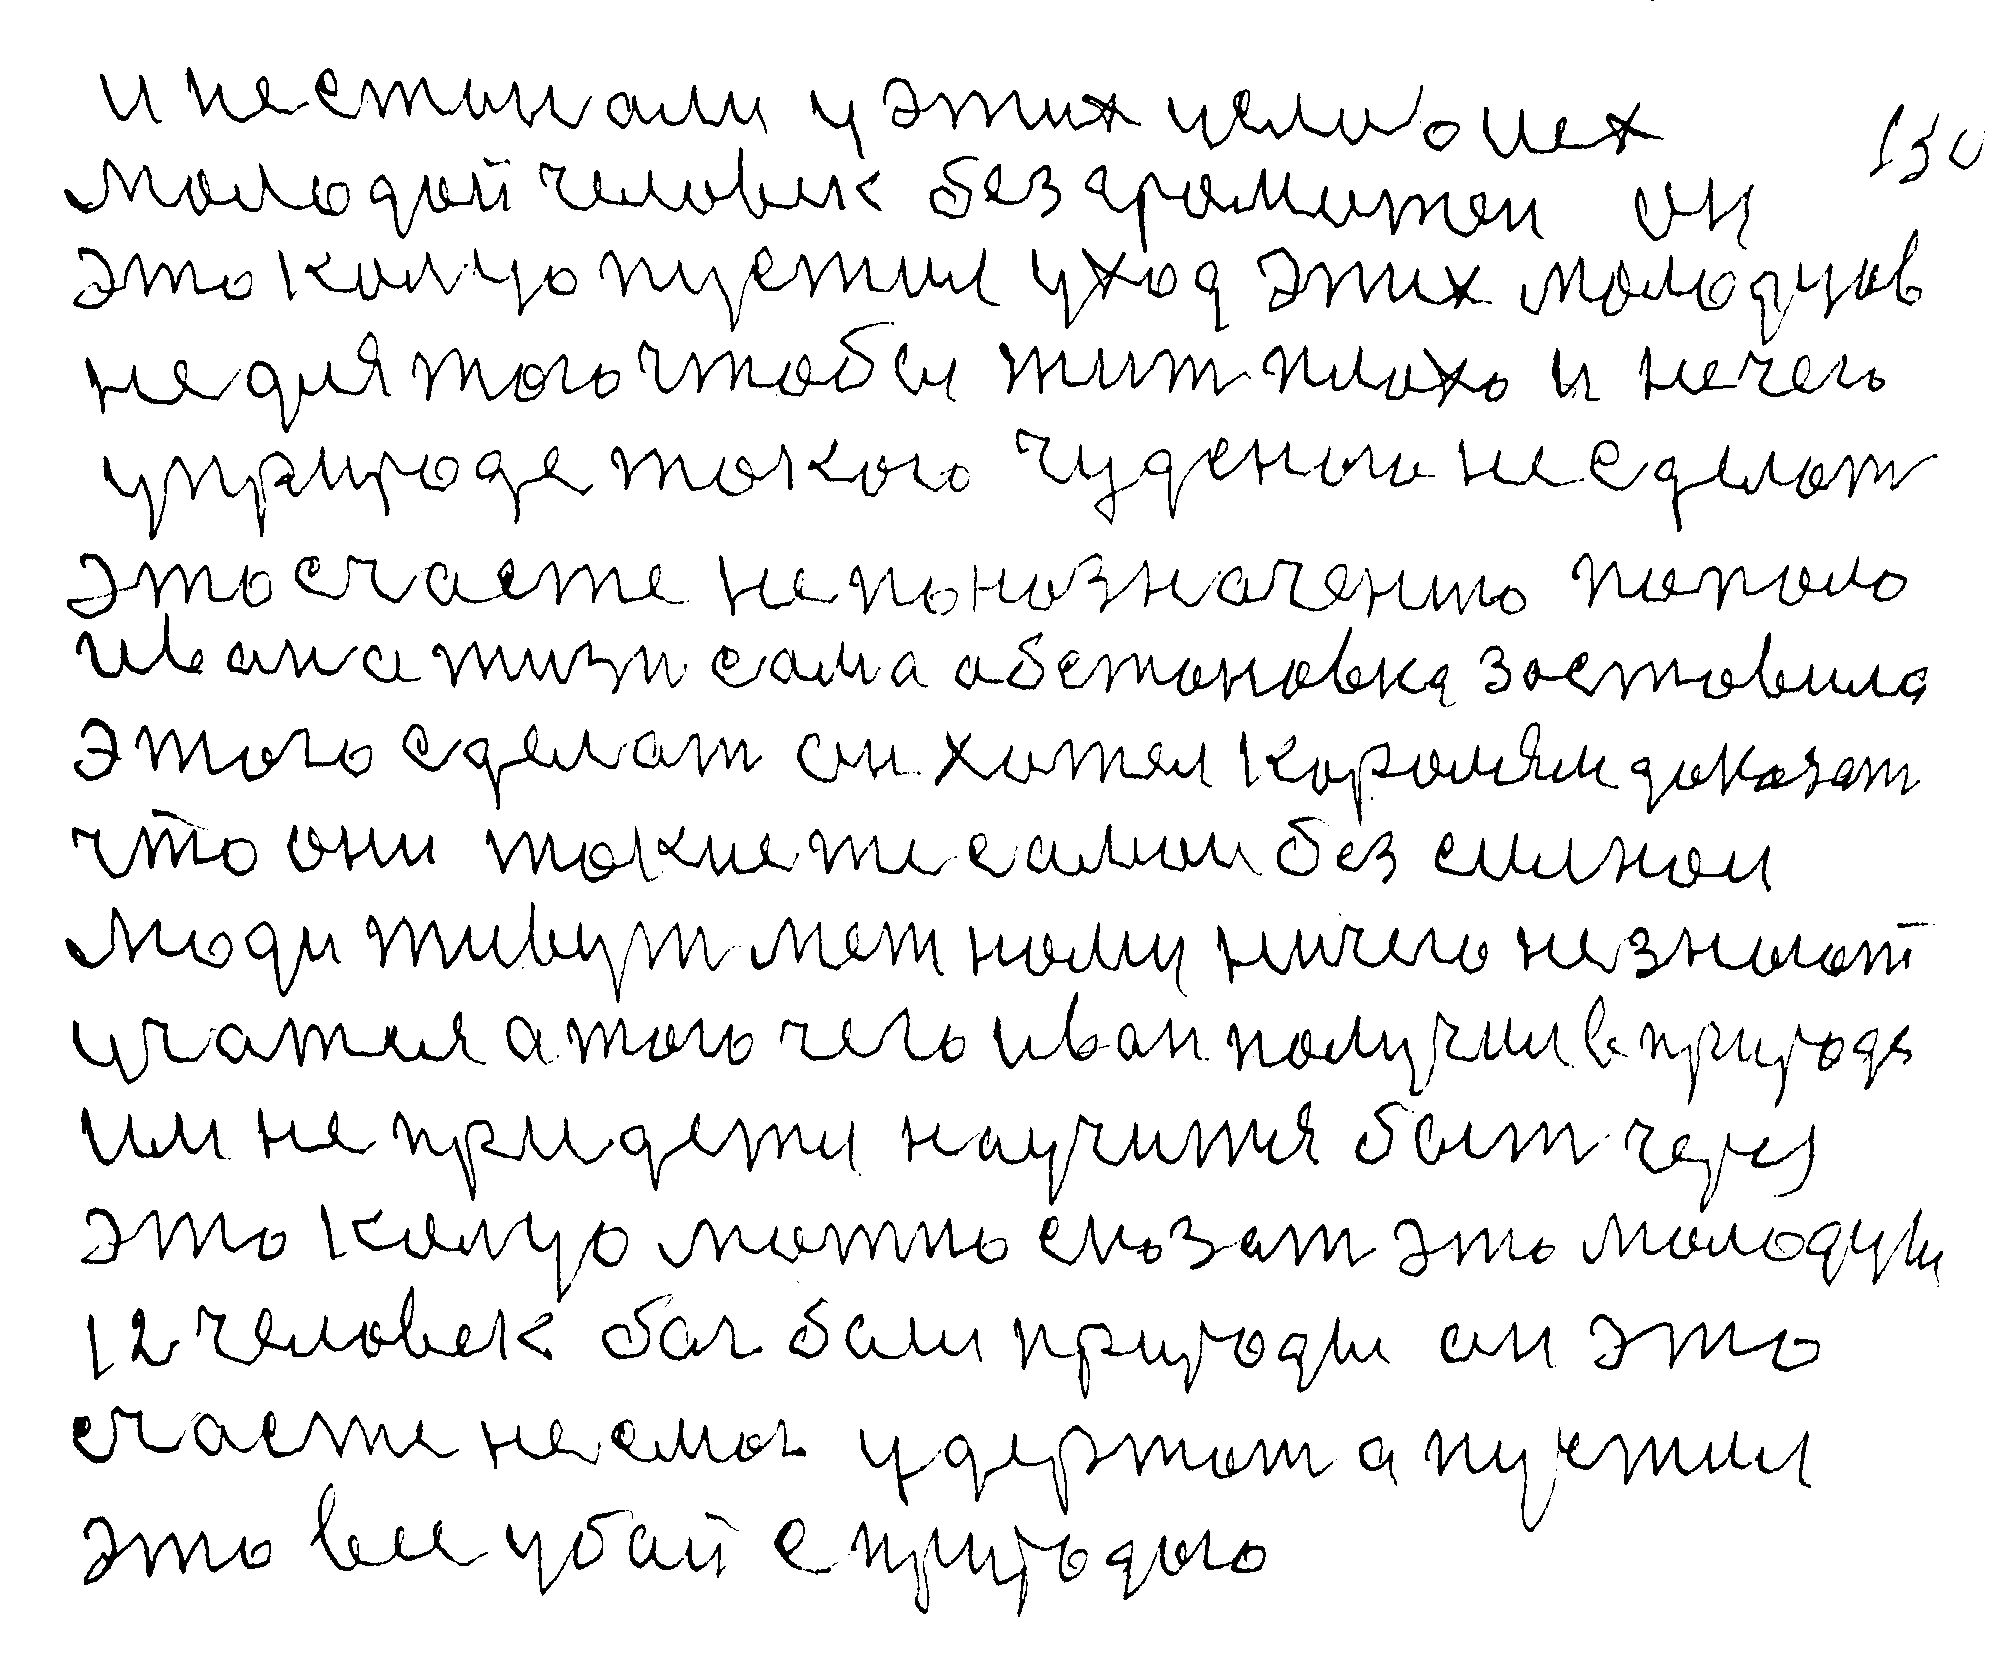 и нестали у этих условиех 130
молодой человек безграмотеи он
это кольцо пустил уход этих молодцов
не для того чтобы жит плохо и нечего
уприроде такого чуденого не сделат
это счасте не по назначению попало
ивана жизн сама обстоновка заставила
этого сделат он хотел королям доказат
что они такие же самои без силнои
люди живут меж нами ничего не знают
учатся а того чего иван получил в природе
им не придетсы научится быт через
это колцо можно сказат это молодцы
12 человек бог был природы он это
счасте не смог удержат а пустил
это все убай с природою